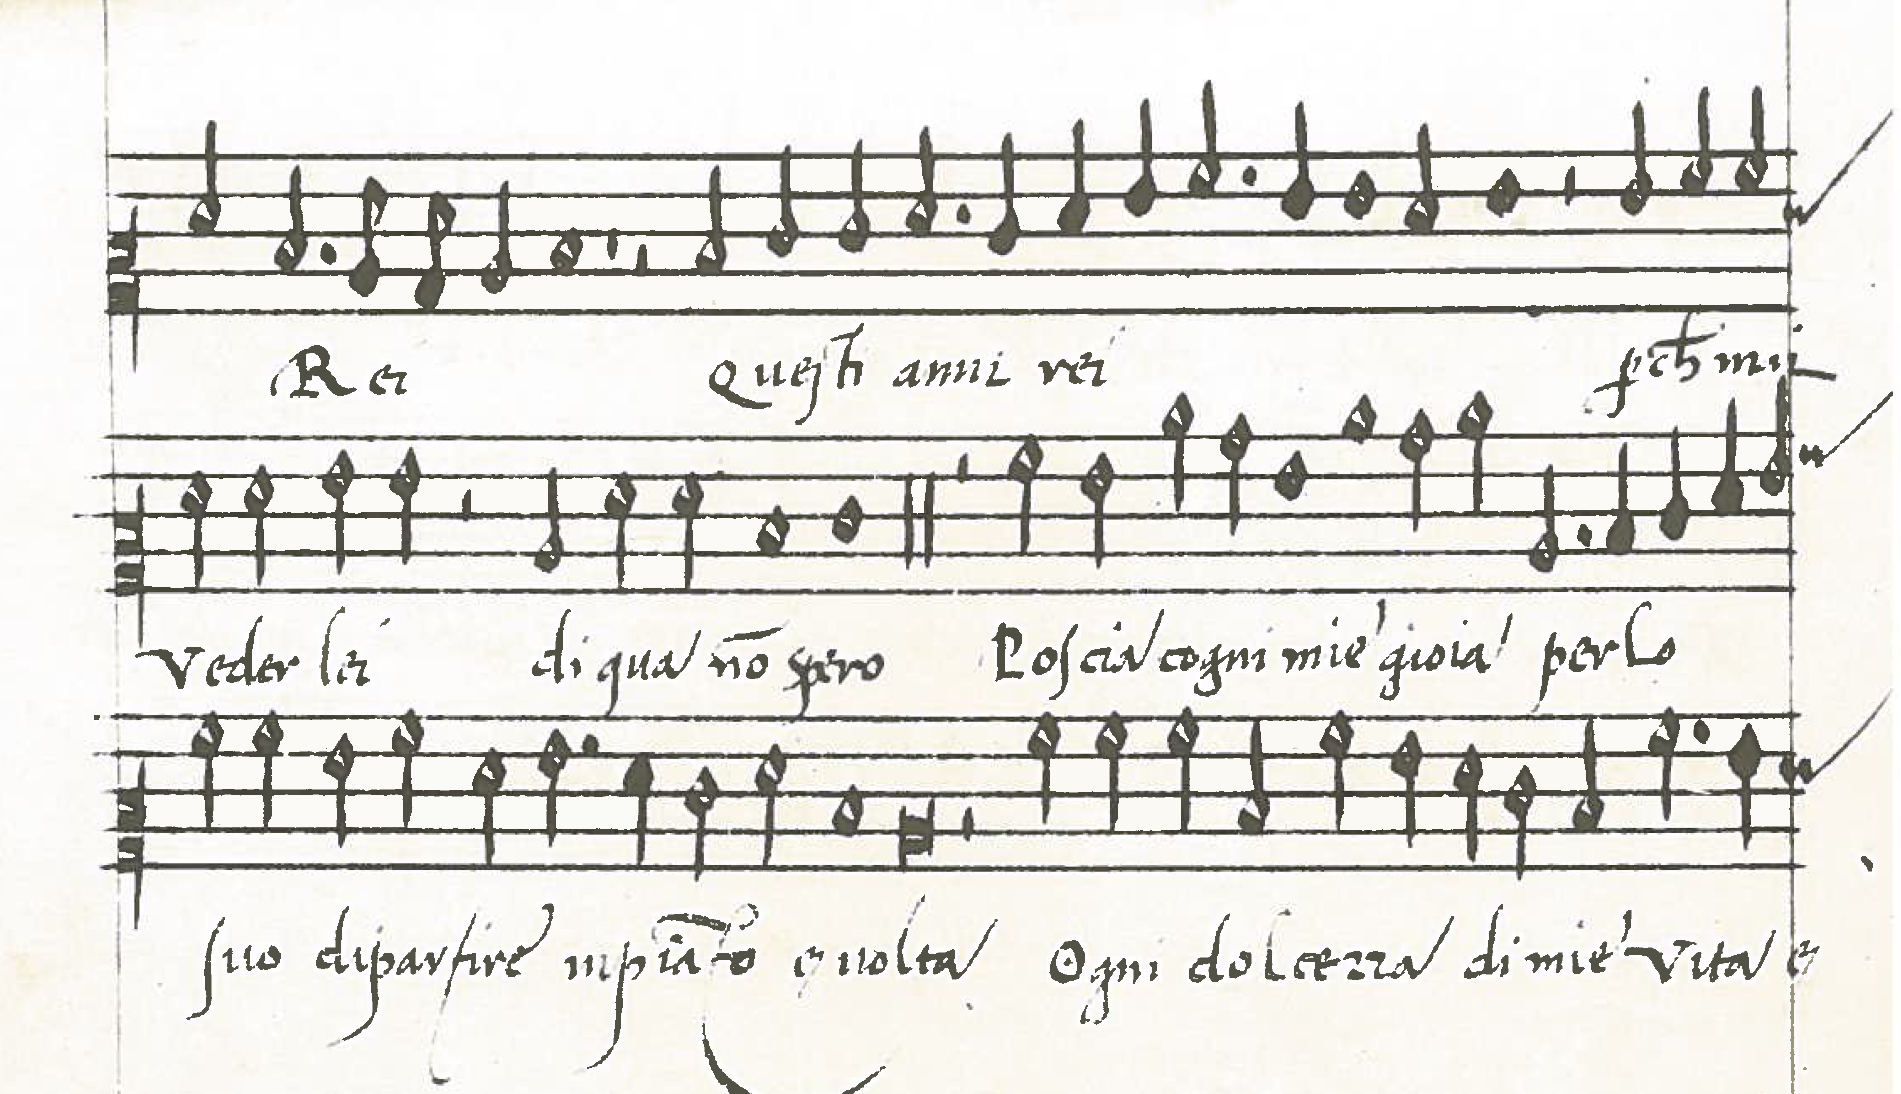 Rei Questi anni rei ꝑch mi
Veder lei di qua nō spero Poscia cogni mie gioia per lo
suo dipartire in piāto e uolta Ogni dolcezza di mie Vita e